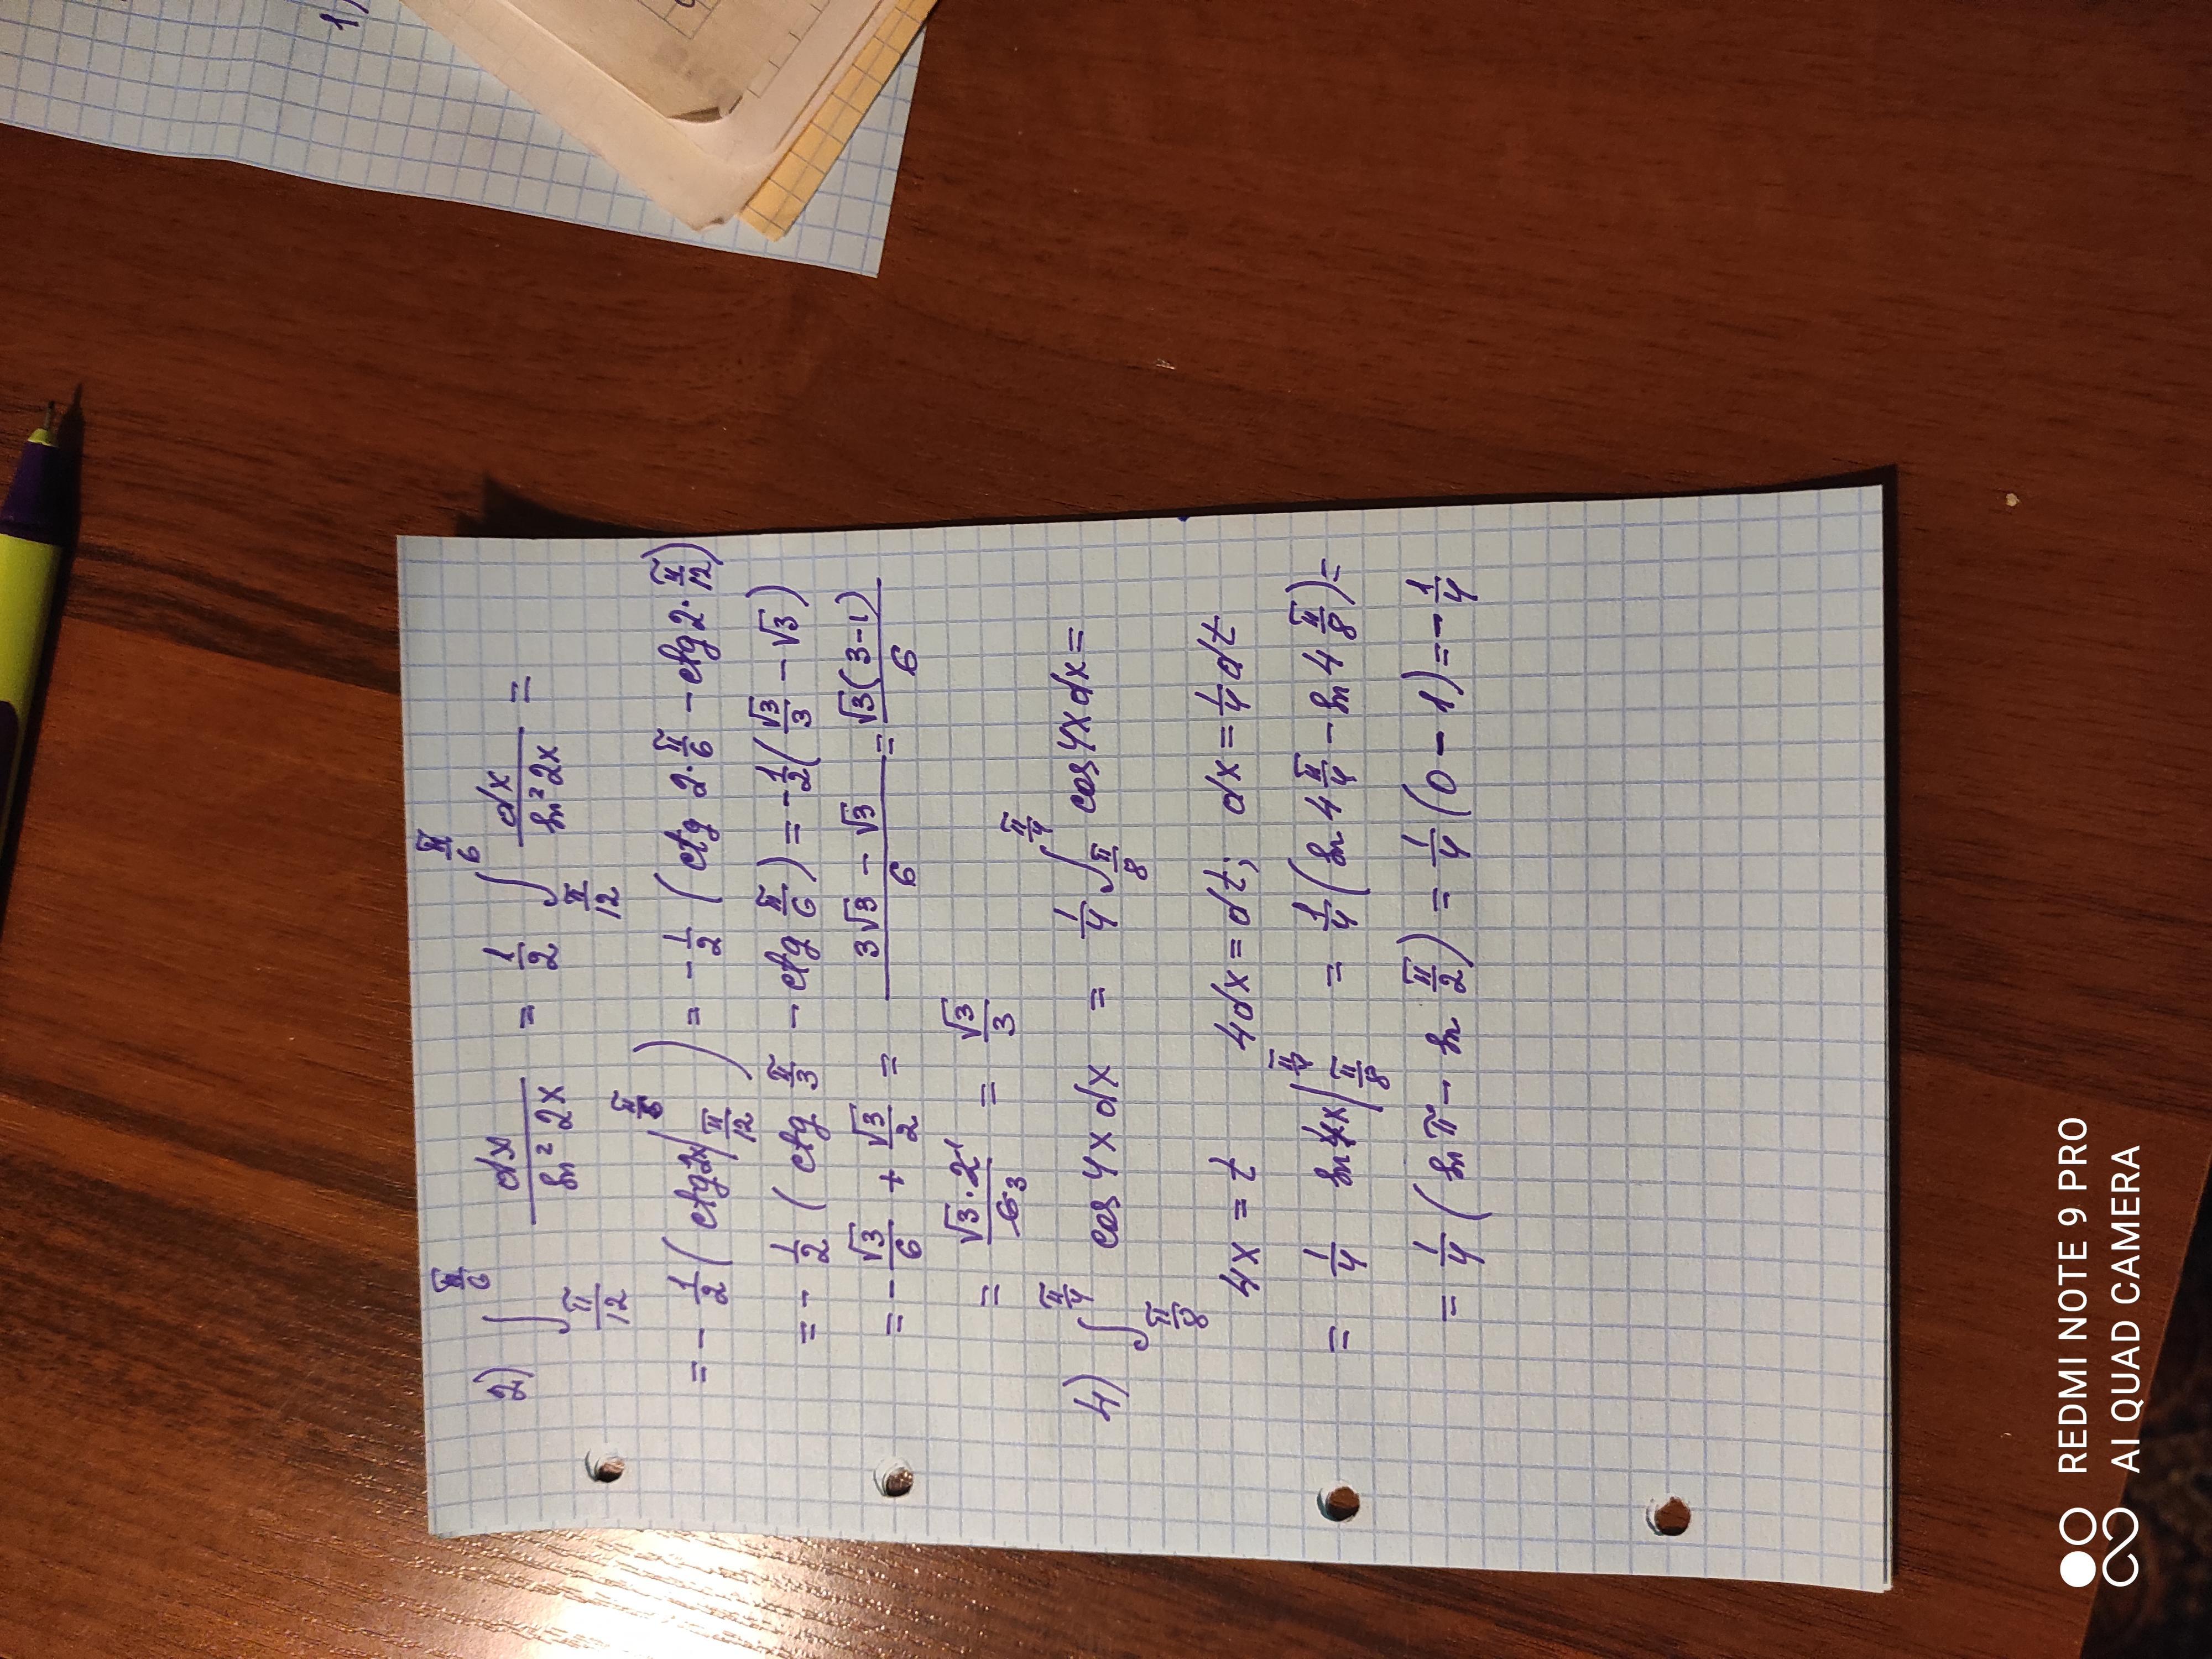 1)
2) ∫_{π/12}^{π/6} dx/sin² 2x = 1/2 ∫_{π/12}^{π/6} dx/sin² 2x =
= - 1/2 ( ctg 2x |_{π/12}^{π/6} ) = - 1/2 ( ctg 2·π/6 - ctg 2·π/12 )
= - 1/2 ( ctg π/3 - ctg π/6 ) = - 1/2 ( √3/3 - √3 )
= - √3/6 + √3/2 = (3√3 - √3)/6 = √3(3-1)/6
= √3·2/6 = √3/3
4) ∫_{π/8}^{π/4} cos 4x dx = 1/4 ∫_{π/8}^{π/4} cos 4x dx =
4x = t 4dx = dt; dx = 1/4 dt
= 1/4 sin 4x |_{π/8}^{π/4} = 1/4 ( sin 4 π/4 - sin 4 π/8 ) =
= 1/4 ( sin π - sin π/2 ) = 1/4 ( 0 - 1 ) = - 1/4
REDMI NOTE 9 PRO
AI QUAD CAMERA